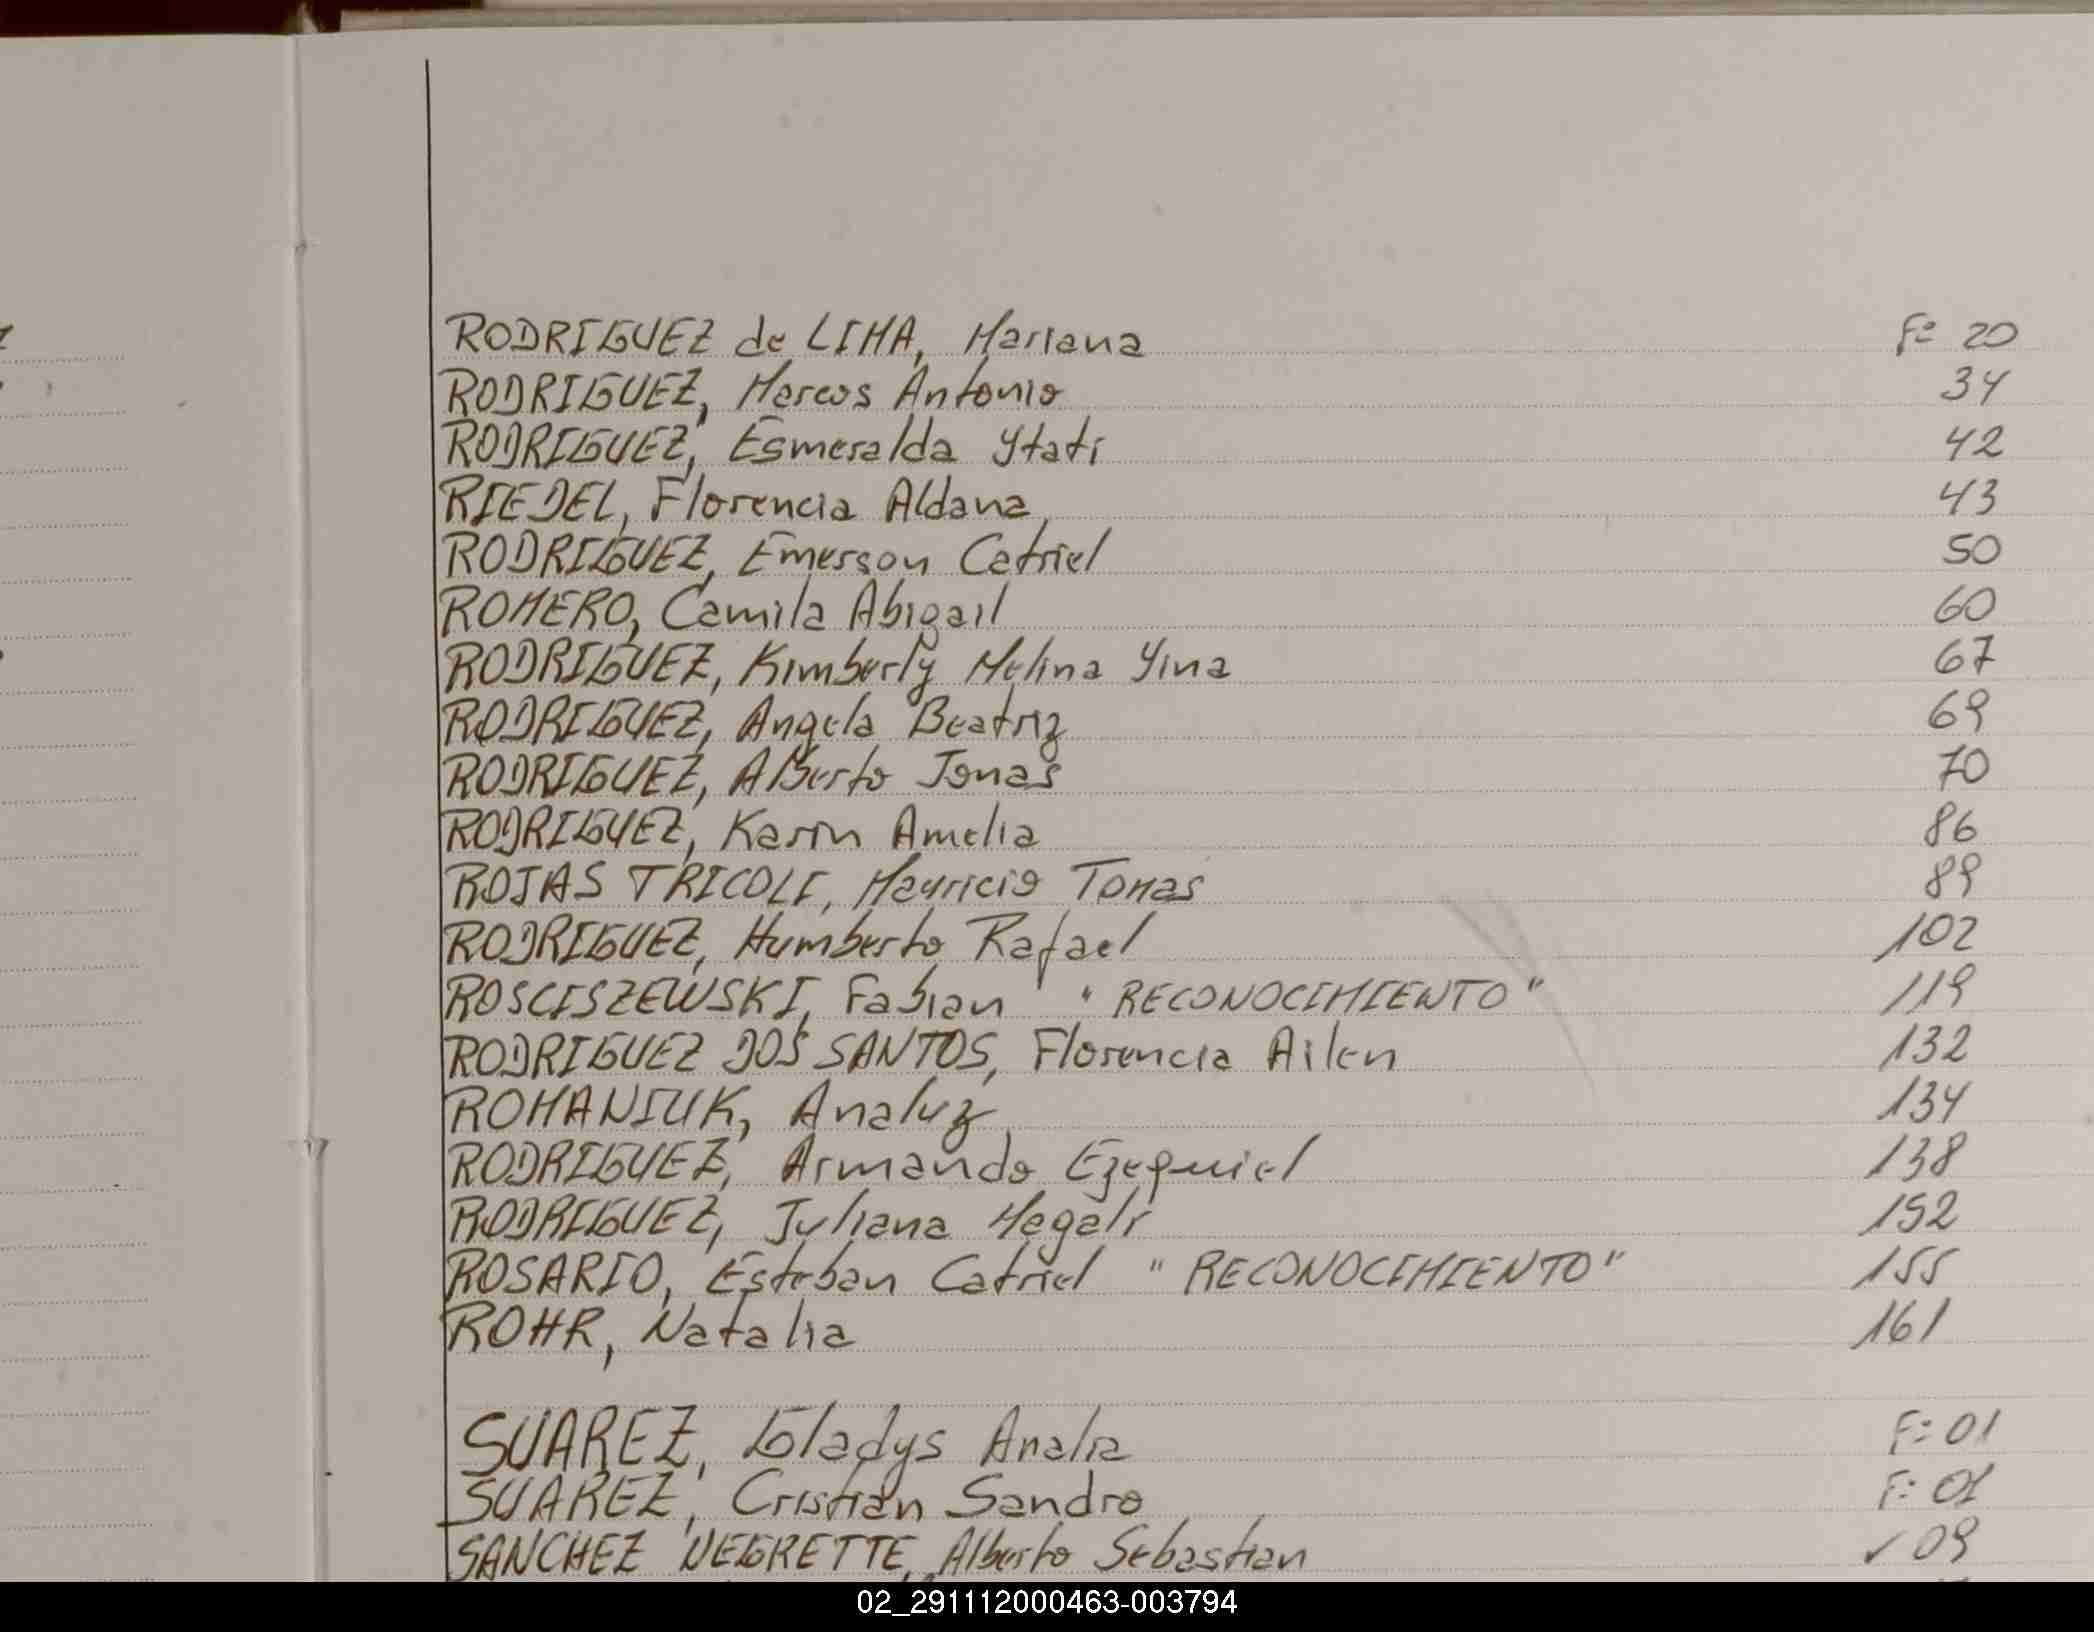 RODRIGUEZ de LIMA, Mariana F: 20
RODRIGUEZ, Marcos Antonio 34
RODRIGUEZ, Esmeralda Ytatí 42
RIEDEL, Florencia Aldana 43
RODRIGUEZ, Emerson Catriel 50
ROMERO, Camila Abigail 60
RODRIGUEZ, Kimberly Melina Yina 67
RODRIGUEZ, Angela Beatriz 69
RODRIGUEZ, Alberto Jonas 70
RODRIGUEZ, Karin Amelia 86
ROJAS TRICOLI, Mauricio Tomas 89
RODRIGUEZ, Humberto Rafael 102
ROSCISZEWSKI, Fabian "RECONOCIMIENTO" 119
RODRIGUEZ DOS SANTOS, Florencia Ailen 132
ROMANIUK, Analuz 134
RODRIGUEZ, Armando Ezequiel 138
RODRIGUEZ, Juliana Magalí 152
ROSARIO, Esteban Catriel "RECONOCIMIENTO" 155
ROHR, Natalia 161
SUAREZ, Gladys Analia F: 01
SUAREZ, Cristian Sandro F: 01
SANCHEZ NEGRETTE, Alberto Sebastian ✓ 09
02_291112000463-003794